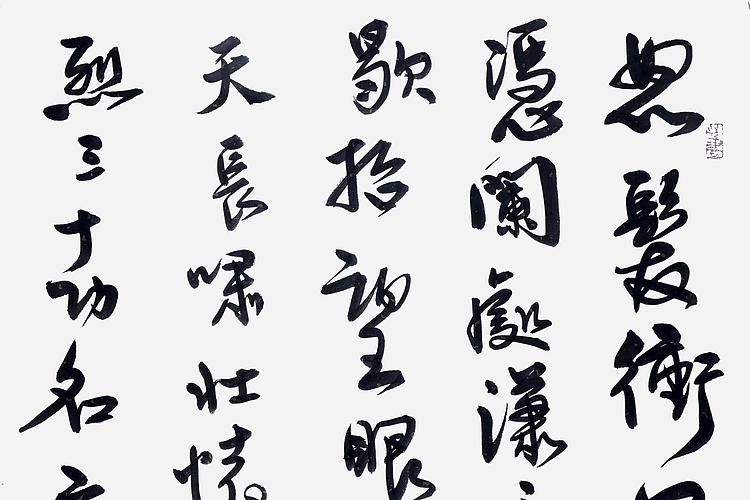 怒髮衝
憑闌處瀟
歇抬望眼
天長嘯壯
烈三十功名